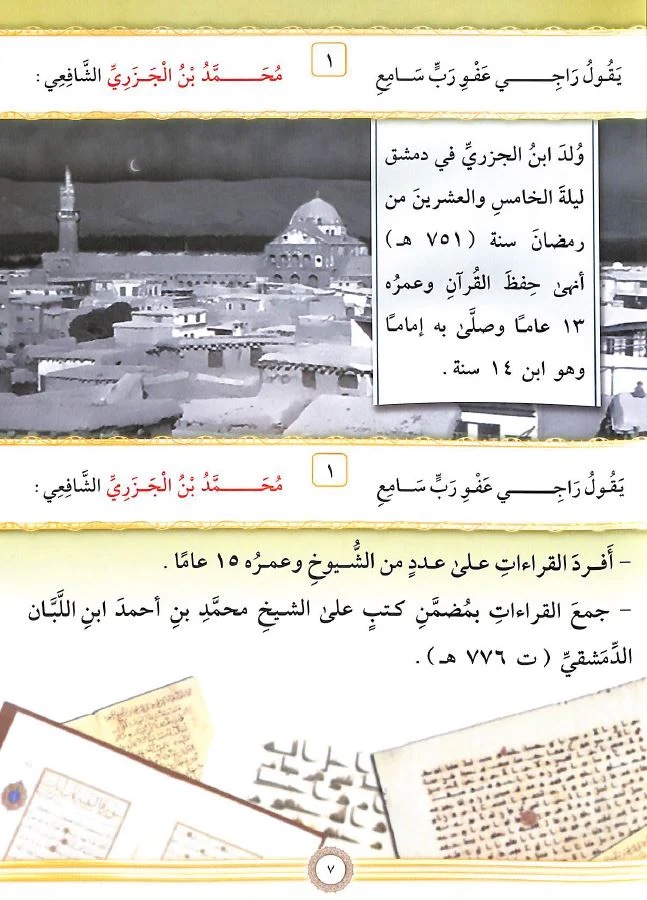 يَقُولُ رَاجِـي عَفْوِ رَبٍّ سَـامِعِ ١ مُحَـمَّدُ بْنُ الْجَزَرِيِّ الشَّافِعِي :
وُلدَ ابنُ الجزريِّ في دمشق
ليلةَ الخامسِ والعشرينَ من
رمضانَ سنة ( ٧٥١ هـ )
أنهىٰ حِفظَ القُرآنِ وعمرُه
١٣ عامًا وصلَّىٰ به إمامًا
وهو ابن ١٤ سنة .
يَقُولُ رَاجِـي عَفْوِ رَبٍّ سَـامِعِ ١ مُحَـمَّدُ بْنُ الْجَزَرِيِّ الشَّافِعِي :
– أَفـردَ القراءاتِ علىٰ عددٍ من الشُّيوخِ وعمرُه ١٥ عامًا .
– جمعَ القراءاتِ بمُضمَّنِ كتبٍ علىٰ الشيخِ محمَّدِ بنِ أحمدَ ابنِ اللَّبَّان
الدِّمَشقيِّ ( ت ٧٧٦ هـ ) .
٧